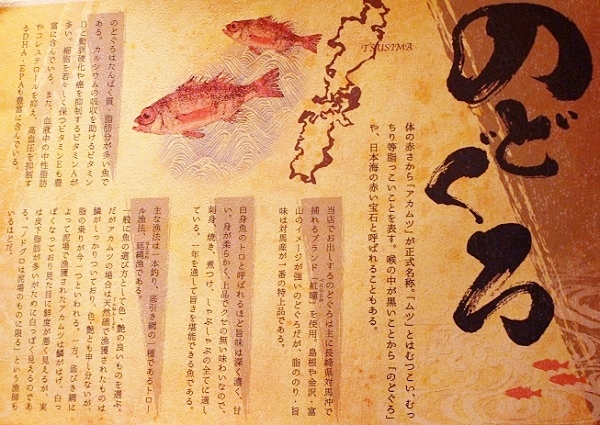 のどぐろ
体の赤さから「アカムツ」が正式名称。「ムツ」とはむつこい、むっ
ちり等脂っこいことを表す。喉の中が黒いことから「のどぐろ」
や、日本海の赤い宝石と呼ばれることもある。
TSUSIMA
当店でお出しするのどぐろは主に長崎県対馬沖で
捕れるブランド「紅瞳」を使用。島根や金沢・富
山のイメージが強いのどぐろだが、脂ののり・旨
味は対馬産が一番の特上品である。
白身魚のトロと呼ばれるほど旨味は深く濃く、甘
い。身が柔らかく、上品でクセの無い味わいなので、
刺身、焼き、煮つけ、しゃぶしゃぶの全てに適し
ている。一年を通して旨さを堪能できる魚である。
主な漁法は一本釣り、底引き網の一種であるトロー
ル漁法、延縄漁である。
一般に魚の選び方として色・艶の良いものを選ぶ。
だがアカムツの場合は天然礁で漁獲されたものは
鱗がしっかりついており、色、艶とも申し分ないが、
脂の乗りが今一つといわれる。一方、底びき網に
よって泥場で漁獲されたアカムツは鱗がはげ、白っ
ぽくなっており見た目に鮮度が悪く見えるが、実
は皮下脂肪が多いがために白っぽく見えるのであ
る。「ノドグロは泥場のものに限る」という漁師も
いるほどだ。
のどぐろはたんぱく質・脂肪分が多い魚で
ある。カルシウムの吸収を助けるビタミン
Dと動脈硬化や癌を抑制するビタミンAが
多い。細胞を若々しく保つビタミンEも豊
富に含んでいる。また、血液中の中性脂肪
やコレステロールを抑え、高血圧を抑制す
るDHA・EPAも豊富に含んでいる。